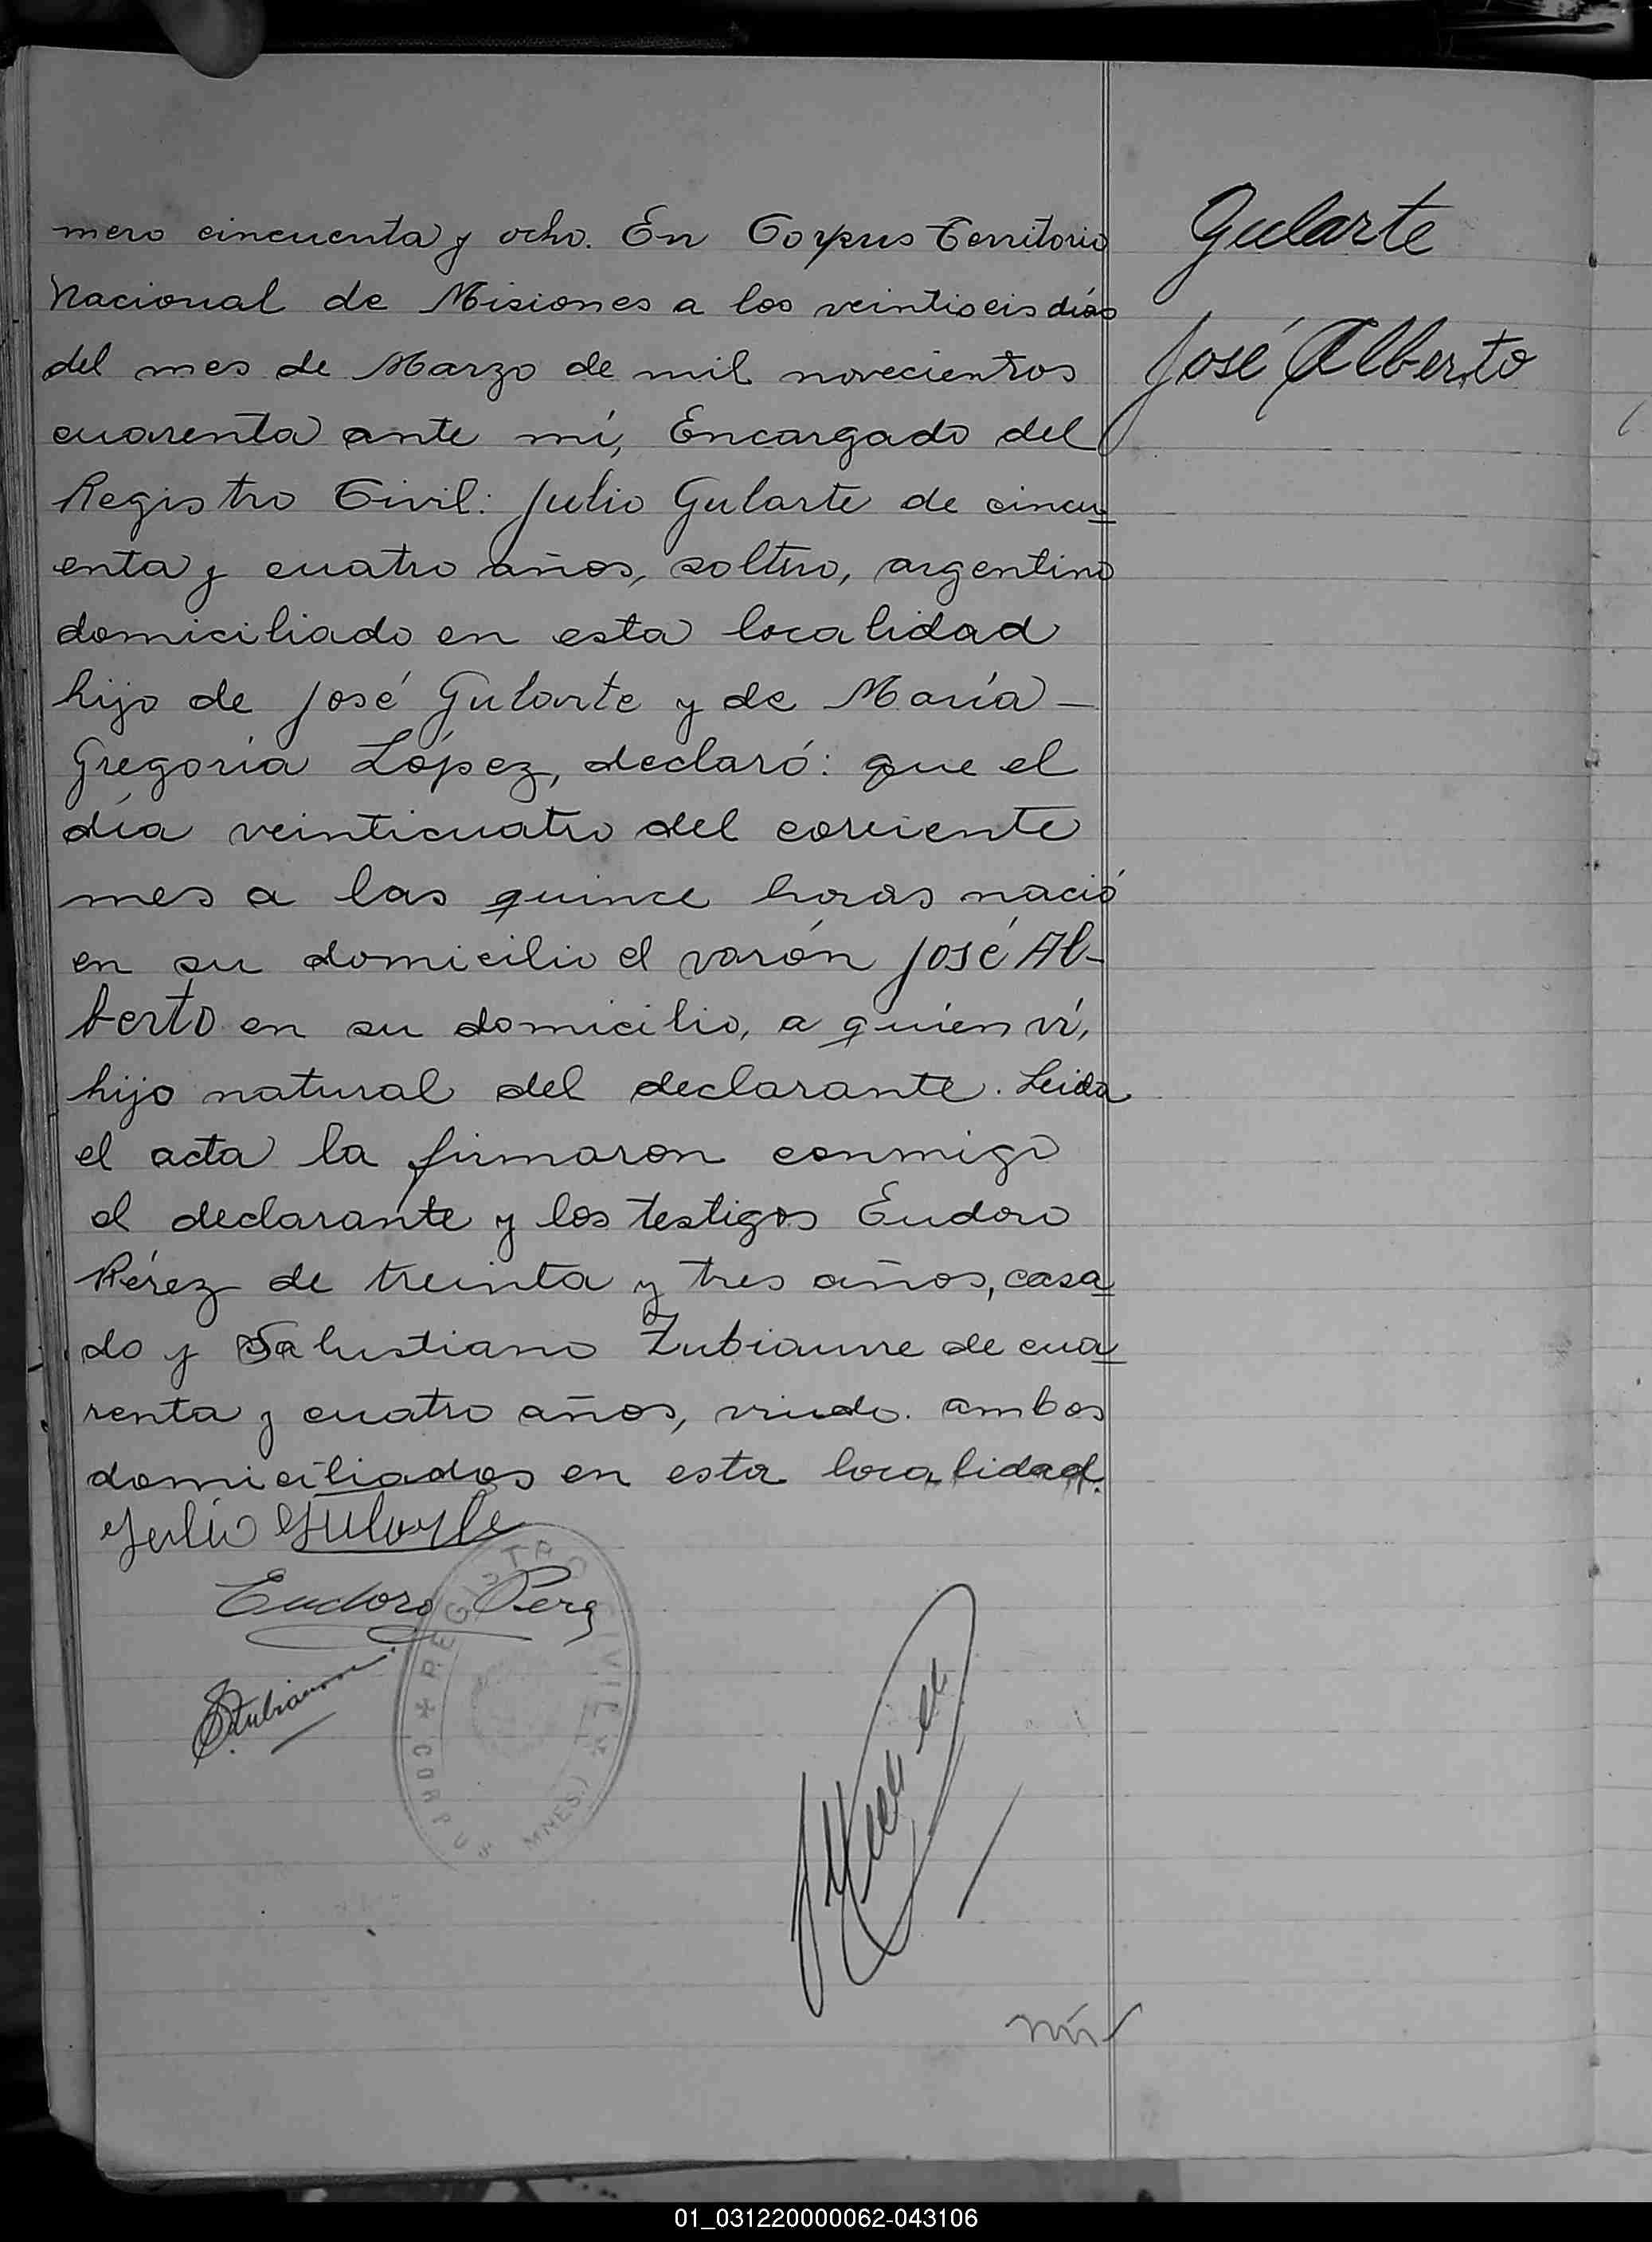 mero cincuenta y ocho. En Corpus Territorio
Nacional de Misiones a los veintiseis días
del mes de Marzo de mil novecientos
cuarenta ante mí, Encargado del
Registro Civil: Julio Gularte de cincu
enta y cuatro años, soltero, argentino
domiciliado en esta localidad
hijo de José Gularte y de María –
Gregoria López, declaró: que el
día veinticuatro del corriente
mes a las quince horas nació
en su domicilio el varón José Al-
berto en su domicilio, a quien ví,
hijo natural del declarante. Leida
el acta la firmaron conmigo
el declarante y los testigos Eudoro
Pérez de treinta y tres años, casa
do y Salustiano Zubiaurre de cua
renta y cuatro años, viudo. ambos
domiciliados en esta localidad.
Julio Gularte
Eudoro Perez
SZubiaurre
REGISTRO CIVIL
CORPUS MNES.)
Gularte
José Alberto
01_031220000062-043106